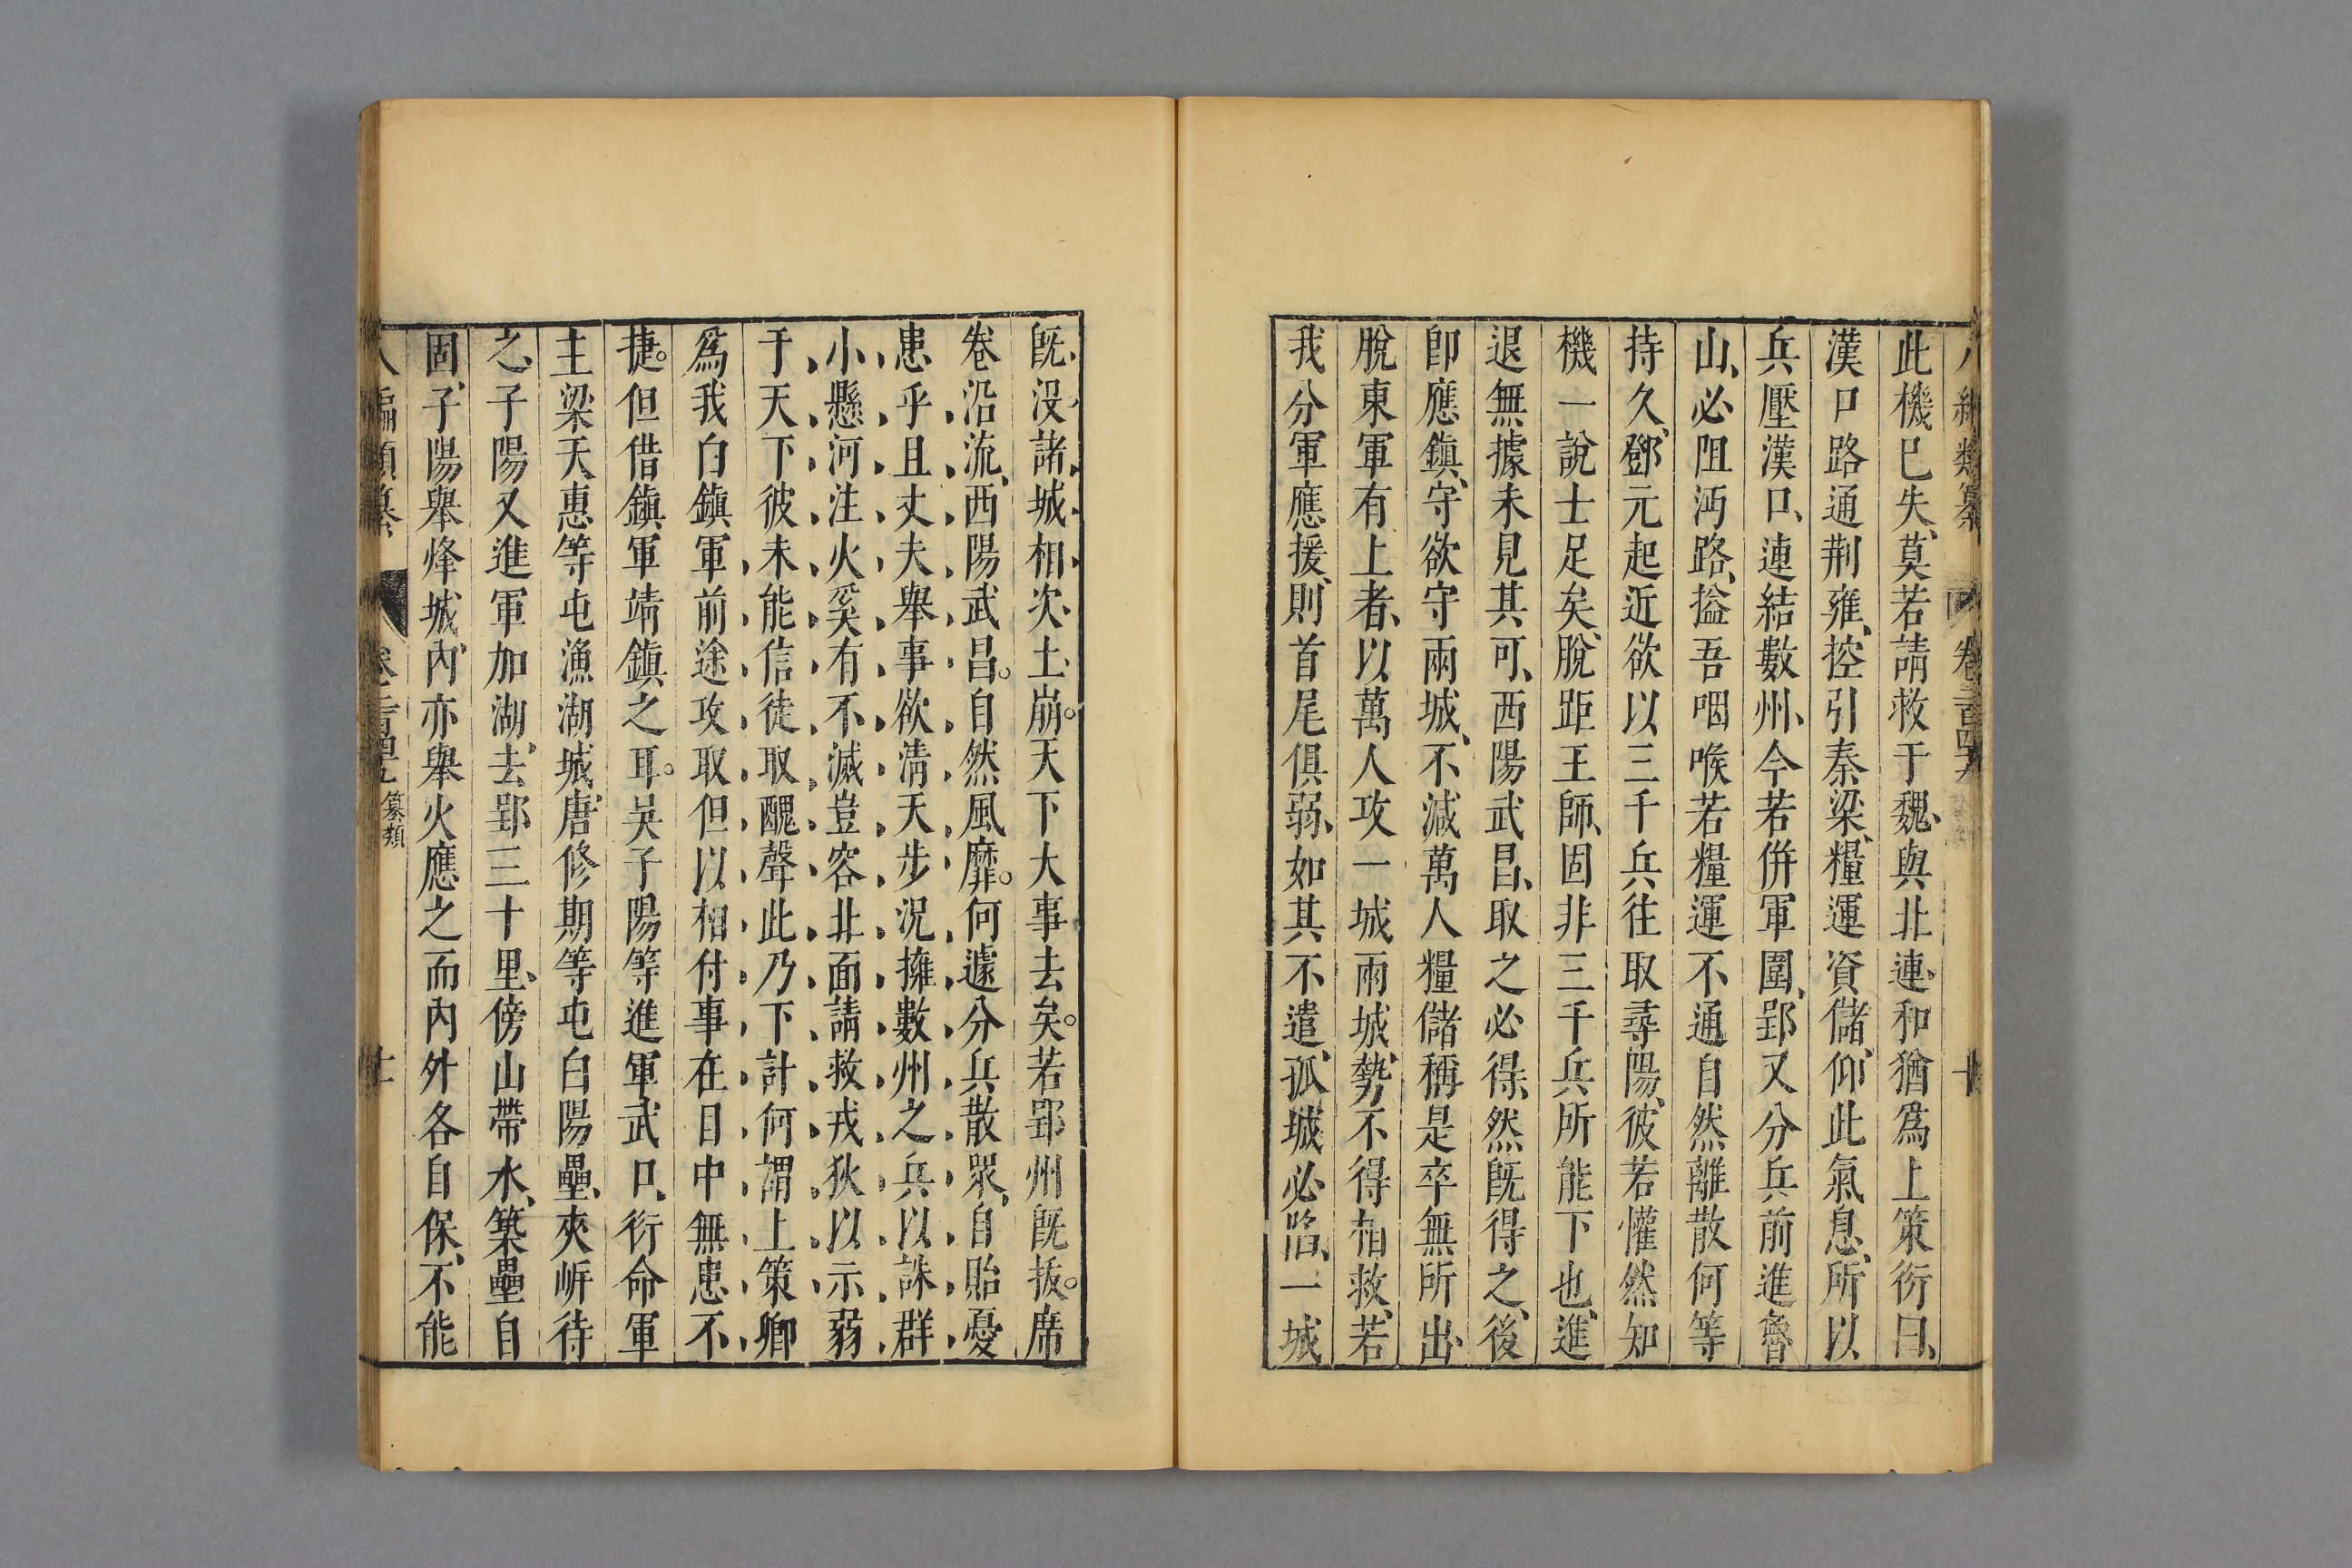 此機已失、莫若請救于魏、與北連和、猶爲上策、衍曰、
漢口路通荆雍、控引秦梁、糧運資儲、仰此氣息、所以
兵壓漢口、連結數州、今若併軍圍郢、又分兵前進魯
山、必阻沔路、搤吾咽喉若糧運不通自然離散何等
持久、鄧元起近欲以三千兵往取尋陽、彼若懽然知
機一說士足矣、脫距王師、固非三千兵所能下也、進
退無據未見其可、西陽武昌、取之必得、然既得之、後
卽應鎮、守欲守兩城、不減萬人糧儲稱是卒無所出、
脫東軍有上者、以萬人攻一城兩城、勢不得相救、若
我分軍應援、則首尾俱弱、如其不遣、孤城必陷、一城
既没諸城相次土崩。天下大事去矣。若郢州既拔。席
卷沿流、西陽武昌。自然風靡。何遽分兵散眾、自貽憂
患乎且丈夫舉事欲清天步況擁數州之兵以誅群
小懸河注火奚有不滅豈容北面請救戎狄以示弱
于天下彼未能信徒取醜聲此乃下計何謂上策卿
爲我白鎮軍前途攻取但以相付事在目中無患不
捷。但借鎮軍靖鎮之耳。吳子陽等進軍武口、衍命軍
主梁天惠等屯漁湖城、唐修期等屯白陽壘、夾岍待
之、子陽又進軍加湖、去郢三十里、傍山帶水、築壘自
固、子陽舉烽城、內亦舉火應之而內外各自保、不能
纂類